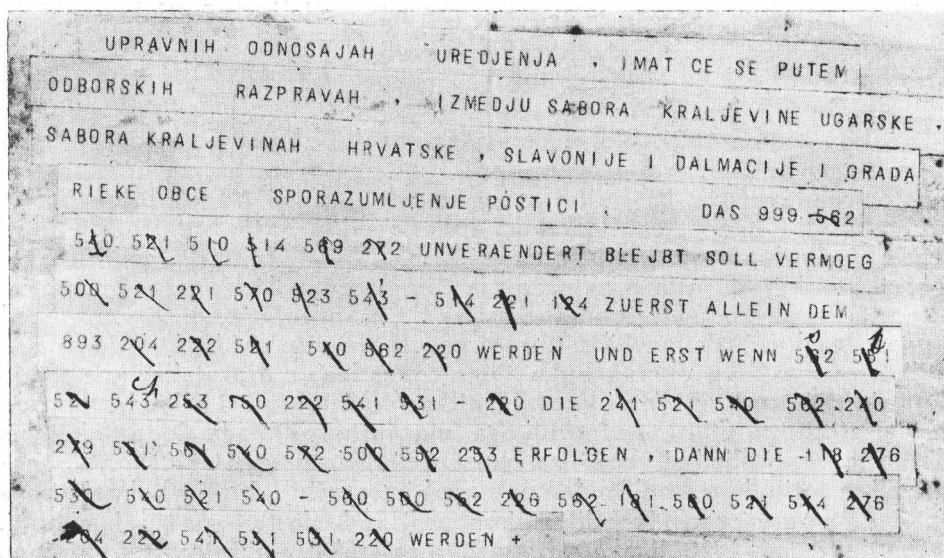 UPRAVNIH ODNOSAJAH UREDJENJA , IMAT CE SE PUTEM
ODBORSKIH RAZPRAVAH , IZMEDJU SABORA KRALJEVINE UGARSKE ,
SABORA KRALJEVINAH HRVATSKE , SLAVONIJE I DALMACIJE I GRADA
RIEKE OBCE SPORAZUMLJENJE POSTICI DAS 999 562
540 521 510 514 569 272 UNVERAENDERT BLEJBT SOLL VERMOEG
500 521 221 570 523 543 - 514 221 124 ZUERST ALLEIN DEM
893 204 222 521 540 562 220 WERDEN UND ERST WENN 562 531
521 543 253 150 222 541 531 - 220 DIE 241 521 540 562 240
279 551 561 540 572 500 552 253 ERFOLGEN , DANN DIE 118 276
530 540 521 540 - 560 500 562 226 562 181 580 521 544 276
204 222 541 551 531 220 WERDEN +